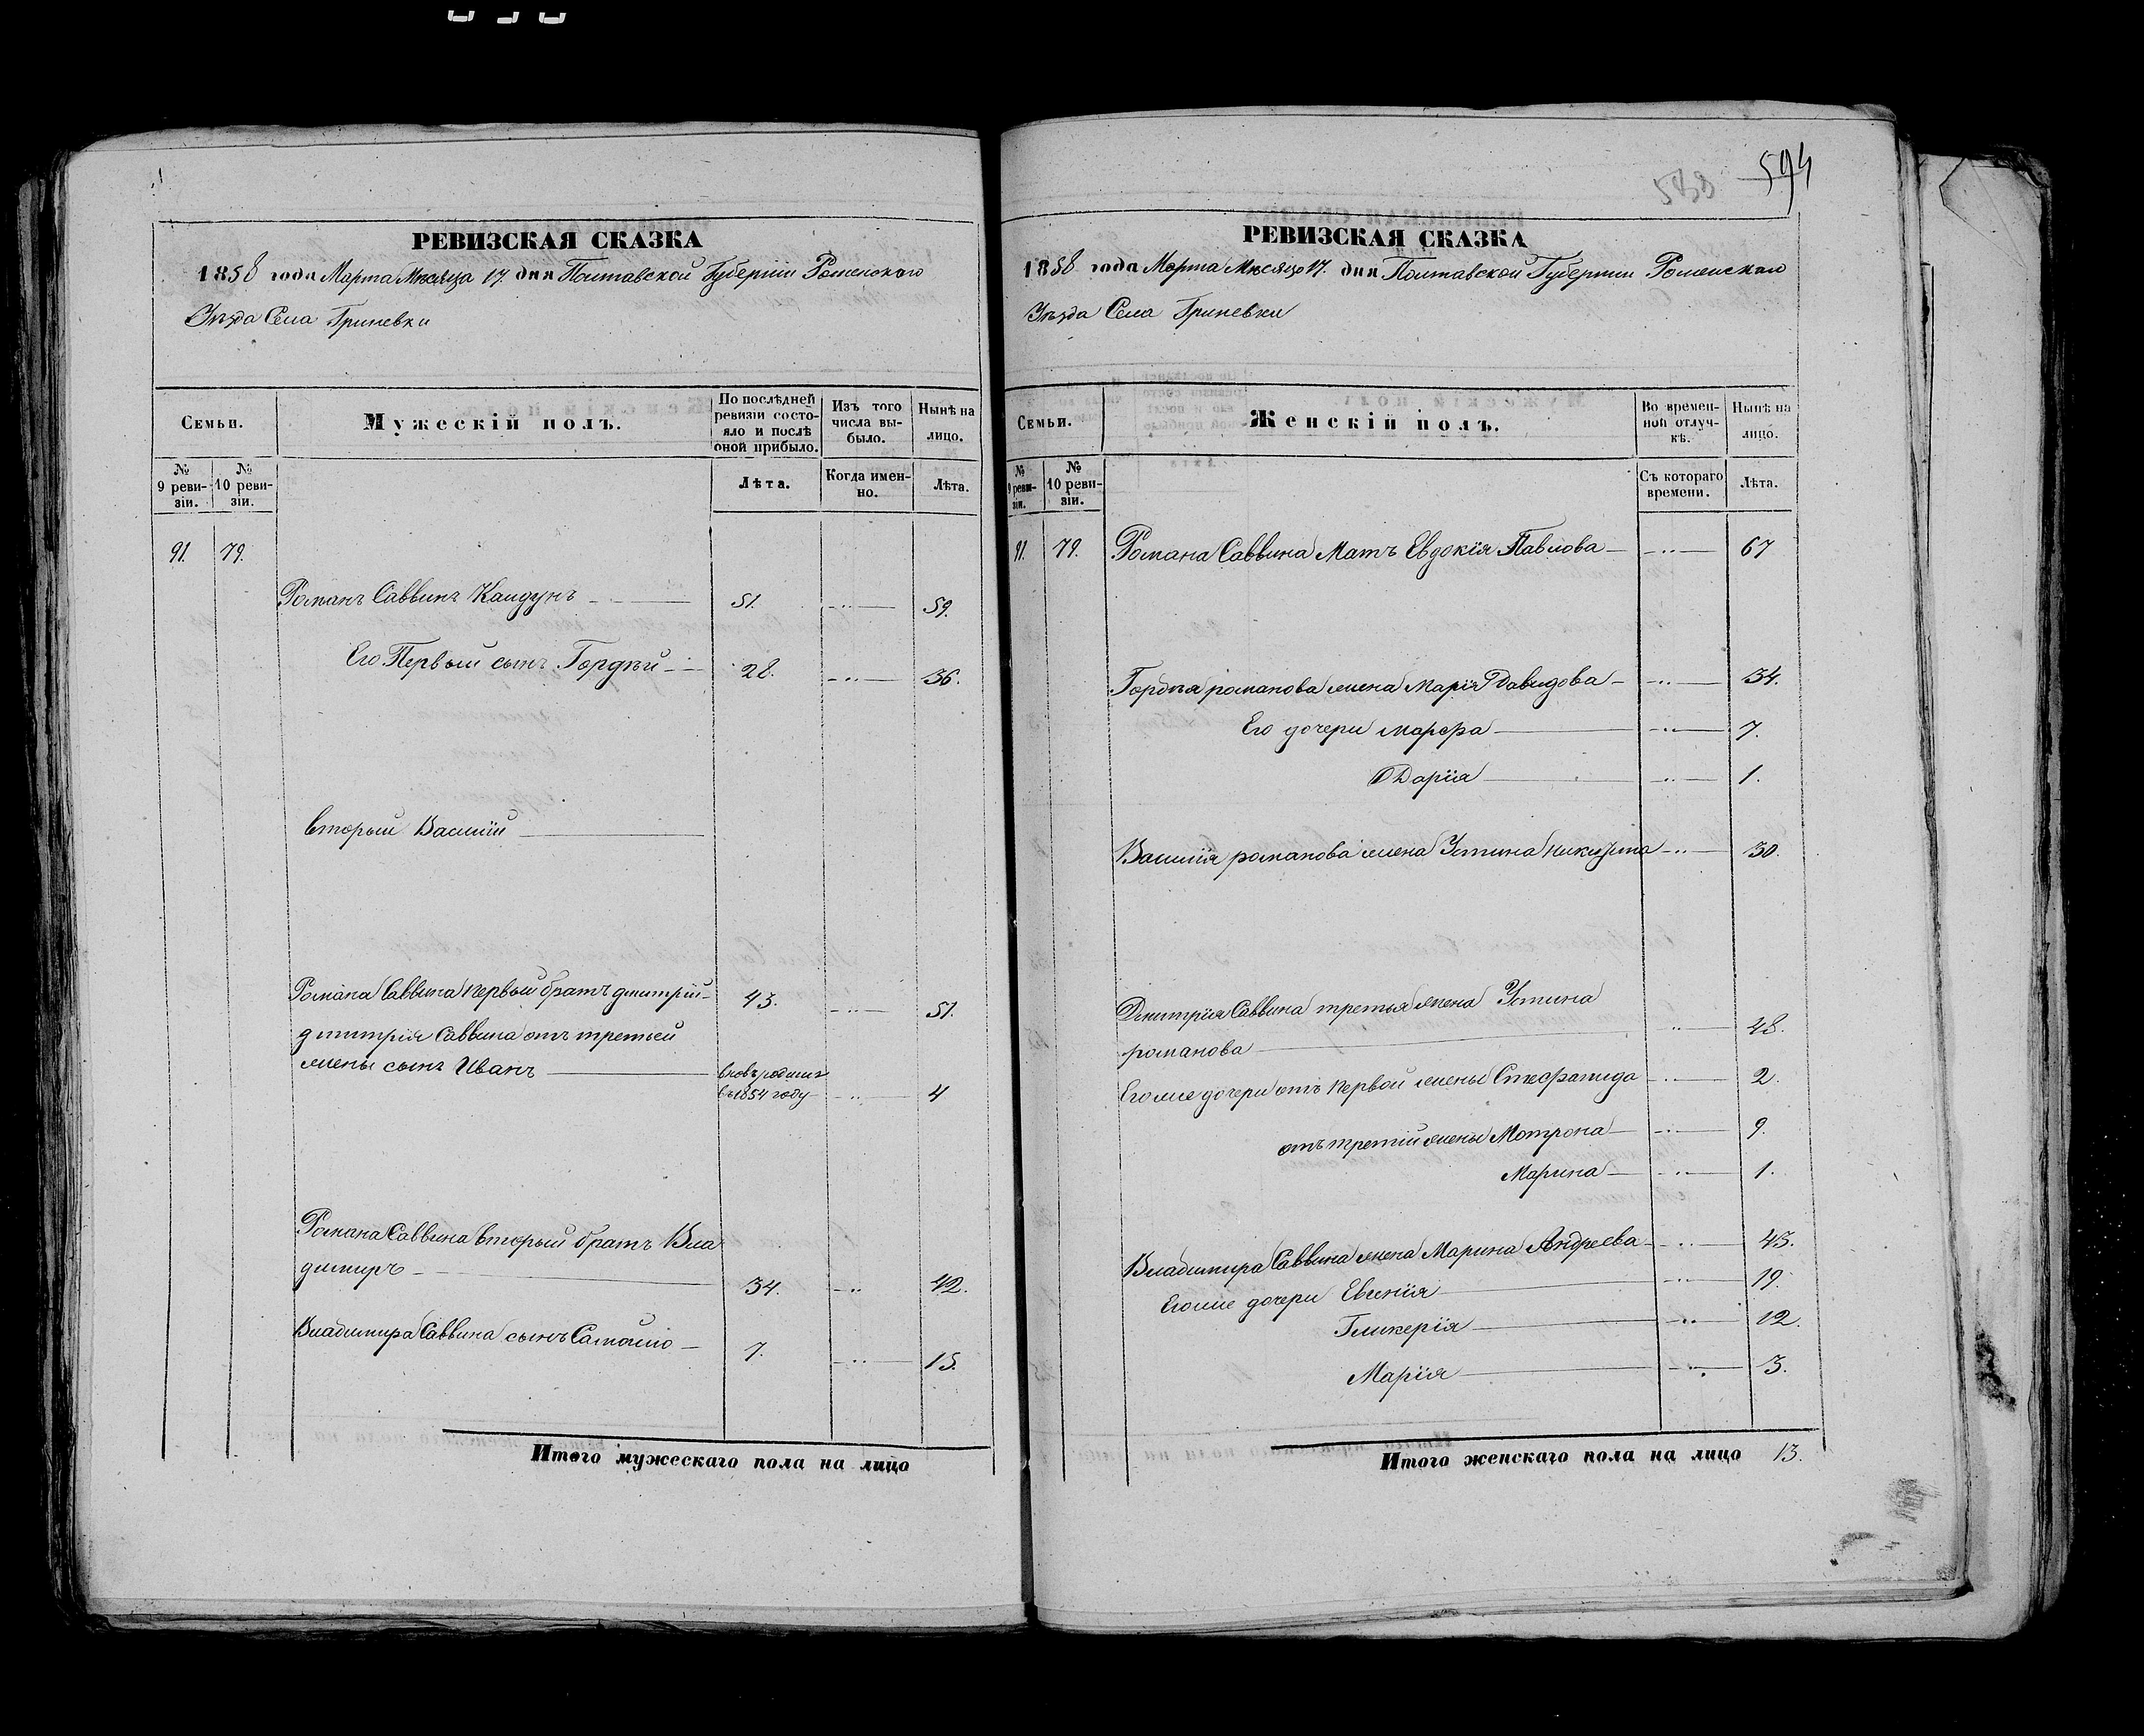 594
588
РЕВИЗСКАЯ СКАЗКА
1858 года Марта Мѣсяца 17. дня Полтавской Губерніи Роменского
Уѣзда Села Гриневки
Семьи.
Мужескій полъ.
По послѣдней ревизіи состояло и послѣ оной прибыло.
Изъ того числа выбыло.
Нынѣ на лицо.
№ 9 ревизіи.
№ 10 ревизіи.
Лѣта.
Когда именно.
Лѣта.
91. 79.
Романъ Саввинъ 51. 59.
Его Первый сынъ Гордѣй 28. 36.
вторый Василій
Романа Саввина первый братъ дмитрій 43. 51.
дмитрія Саввина отъ третьей
жены сынъ Иванъ вновь родился
въ 1854 году 4
Романа Саввина вторый братъ Вла
димиръ 34. 42.
Владимира Саввина сынъ Самойло 7. 15.
Итого мужескаго пола на лицо
РЕВИЗСКАЯ СКАЗКА
1858 года Марта Мѣсяца 17. дня Полтавской Губерніи Роменского
Уѣзда Села Гриневки
Семьи.
Женскій полъ.
Во временной отлучкѣ.
Нынѣ на лицо.
№ 9 ревизіи.
№ 10 ревизіи.
Съ котораго времени.
Лѣта.
91. 79. Романа Саввина Мать Евдокія Павлова 67
Гордѣя романова жена Марія Давидова 34.
Его дочери марфа 7.
Дарія 1.
Василія романова жена Устина никитина 30.
Дмитрія Саввина третья жена Устина
романова 48.
Егоже дочери отъ первой жены Стефанида 2.
отъ третій жены Мотрона 9.
Марина 1.
Владимира Саввина жена Марина Андреева 43.
Егоже дочери Евгенія 19.
Гликерія 12.
Марія 3.
Итого женскаго пола на лицо 13.